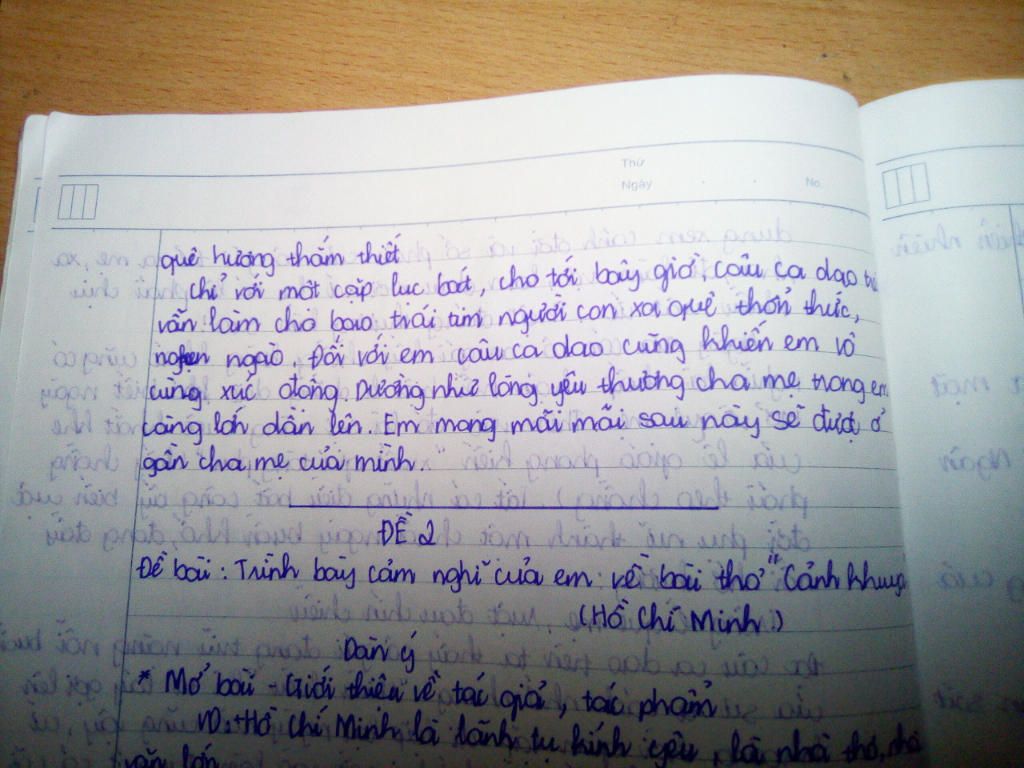 Thứ
Ngày No.
quê hương thắm thiết
Chỉ với một cặp lục bát, cho tới bây giờ câu ca dao
vẫn làm cho bao trái tim người con xa quê thổn thức,
nghẹn ngào. Đối với em câu ca dao cũng khiến em vô
cùng xúc động. Dường như lòng yêu thương cha mẹ trong em
càng lớn dần lên. Em mong mãi mãi sau này sẽ được ở
gần cha mẹ của mình.
ĐỀ 2
Đề bài: Trình bày cảm nghĩ của em về bài thơ "Cảnh khuya
(Hồ Chí Minh)
Dàn ý
* Mở bài - Giới thiệu về tác giả, tác phẩm
VD: + Hồ Chí Minh là lãnh tụ kính yêu, là nhà thơ, nhà
văn lớn